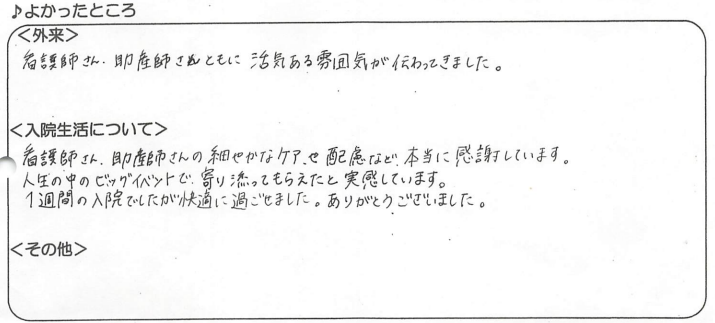 ♪よかったところ
＜外来＞
看護師さん、助産師さんともに 活気ある雰囲気が伝わってきました。
＜入院生活について＞
看護師さん、助産師さんの細やかなケアや配慮など、本当に感謝しています。
人生の中のビッグイベントで、寄り添ってもらえたと実感しています。
1週間の入院でしたが快適に過ごせました。ありがとうございました。
＜その他＞